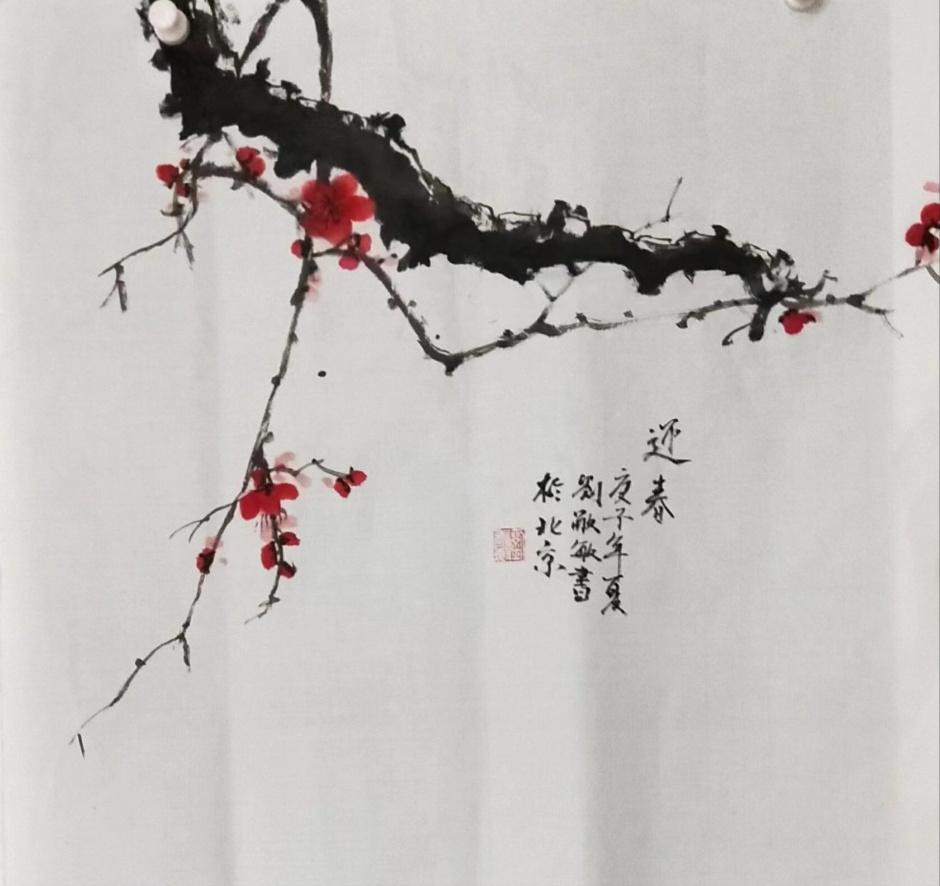 迎春
庚子年夏
劉敏書
於北京